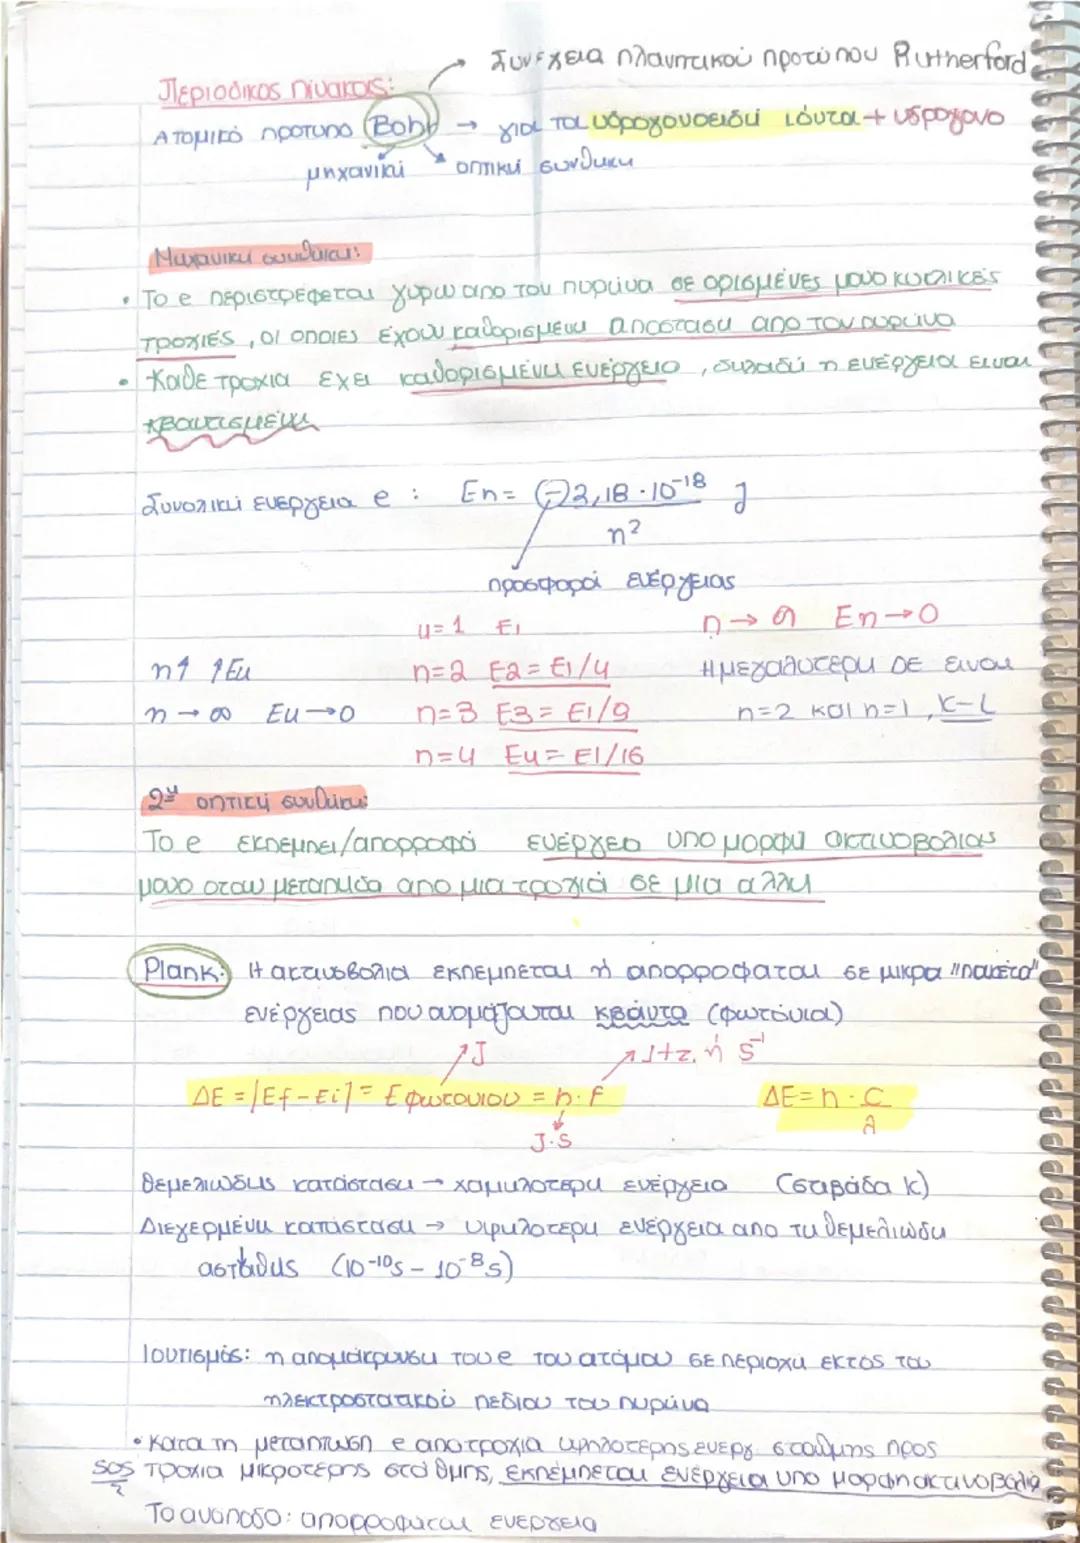 Συνέχεια πλανητικού προτύπου Rutherford
Περιοδικός πίνακας:
Ατομικό πρότυπο Bohr → για τα υδρογονοειδή ιόντα + υδρογόνο
μηχανική οπτική συνθήκη
Μηχανική συνθήκη:
• Το e περιστρέφεται γύρω από τον πυρήνα σε ορισμένες μόνο κυκλικές
τροχιές, οι οποίες έχουν καθορισμένη απόσταση από τον πυρήνα
• Κάθε τροχιά έχει καθορισμένη ενέργεια, δηλαδή η ενέργεια είναι
κβαντισμένη
Συνολική ενέργεια e : En = -2,18·10^-18 J
n²
προσφορά ενέργειας
n=1 E1 n→∞ En→0
n↑ ↑En n=2 E2=E1/4 Η μεγαλύτερη ΔΕ είναι
n→∞ En→0 n=3 E3=E1/9 n=2 και n=1, K-L
n=4 E4=E1/16
2η οπτική συνθήκη:
Το e εκπέμπει/απορροφά ενέργεια υπό μορφή ακτινοβολίας
μόνο όταν μεταπηδά από μια τροχιά σε μια άλλη
Plank: Η ακτινοβολία εκπέμπεται ή απορροφάται σε μικρά "πακέτα"
ενέργειας που ονομάζονται κβάντα (φωτόνια)
J Hz ή s^-1
ΔΕ = |Ef-Ei| = E φωτονίου = h·f ΔΕ = h·c
J·s λ
Θεμελιώδης κατάσταση → χαμηλότερη ενέργεια (στιβάδα K)
Διεγερμένη κατάσταση → υψηλότερη ενέργεια από τη θεμελιώδη
ασταθής (10^-10s - 10^-8s)
Ιοντισμός: η απομάκρυνση του e του ατόμου σε περιοχή εκτός του
ηλεκτροστατικού πεδίου του πυρήνα
• Κατά τη μετάπτωση e από τροχιά υψηλότερης ενεργ. στάθμης προς
SOS τροχιά μικρότερης στάθμης, εκπέμπεται ενέργεια υπό μορφή ακτινοβολία
Το αντίποδο: απορροφάται ενέργεια